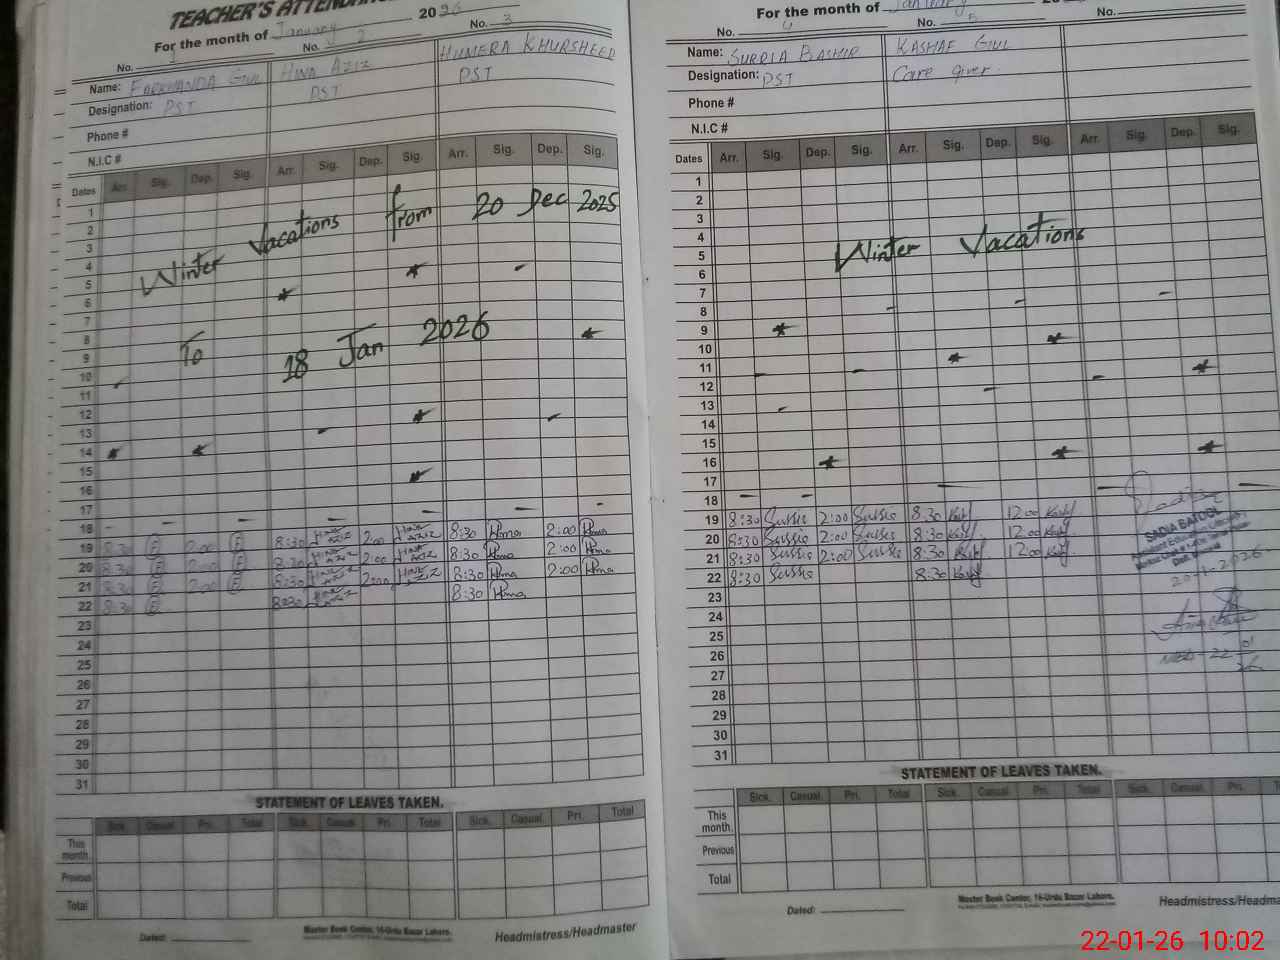 TEACHER'S ATTENDANCE
For the month of January 2026
No. 1 No. 2 No. 3
Name: FARKHANDA GILL HINA AZIZ HUMERA KHURSHEED
Designation: PST PST PST
Phone #
N.I.C #
Dates Arr. Sig. Dep. Sig. Arr. Sig. Dep. Sig. Arr. Sig. Dep. Sig.
1
2
3
4
5
6
7
8
9
10
11
12
13
14
15
16
17
18
Winter Vacations from 20 Dec 2025
To 18 Jan 2026
19 8:30 F 2:00 F 8:30 HINA AZIZ 2:00 HINA AZIZ 8:30 Hma 2:00 Hma
20 8:30 F 2:00 F 8:30 HINA AZIZ 2:00 HINA AZIZ 8:30 Hma 2:00 Hma
21 8:30 F 2:00 F 8:30 HINA AZIZ 2:00 HINA AZIZ 8:30 Hma 2:00 Hma
22 8:30 F 8:30 HINA AZIZ 8:30 Hma
23
24
25
26
27
28
29
30
31
STATEMENT OF LEAVES TAKEN.
Sick. Casual. Pri. Total Sick. Casual. Pri. Total Sick. Casual. Pri. Total
This month.
Previous
Total
Dated:
Master Book Center, 16-Urdu Bazar Lahore.
Headmistress/Headmaster
For the month of January
No. 4 No. 5 No.
Name: SURRIA BASHIR KASHAF GILL
Designation: PST Care giver
Phone #
N.I.C #
Dates Arr. Sig. Dep. Sig. Arr. Sig. Dep. Sig. Arr. Sig. Dep. Sig.
1
2
3
4
5
6
7
8
9
10
11
12
13
14
15
16
17
18
Winter Vacations
19 8:30 Sussie 2:00 Sussie 8:30 Kashf 12:00 Kashf
20 8:30 Sussie 2:00 Sussie 8:30 Kashf 12:00 Kashf
21 8:30 Sussie 2:00 Sussie 8:30 Kashf 12:00 Kashf
22 8:30 Sussie 8:30 Kashf
23
24
25
26
27
28
29
30
31
SADIA BATOOL
20-1-2026
STATEMENT OF LEAVES TAKEN.
Sick. Casual. Pri. Total Sick. Casual. Pri. Total Sick. Casual. Pri.
This month.
Previous
Total
Dated:
Master Book Center, 16-Urdu Bazar Lahore.
Headmistress/Headma
22-01-26 10:02